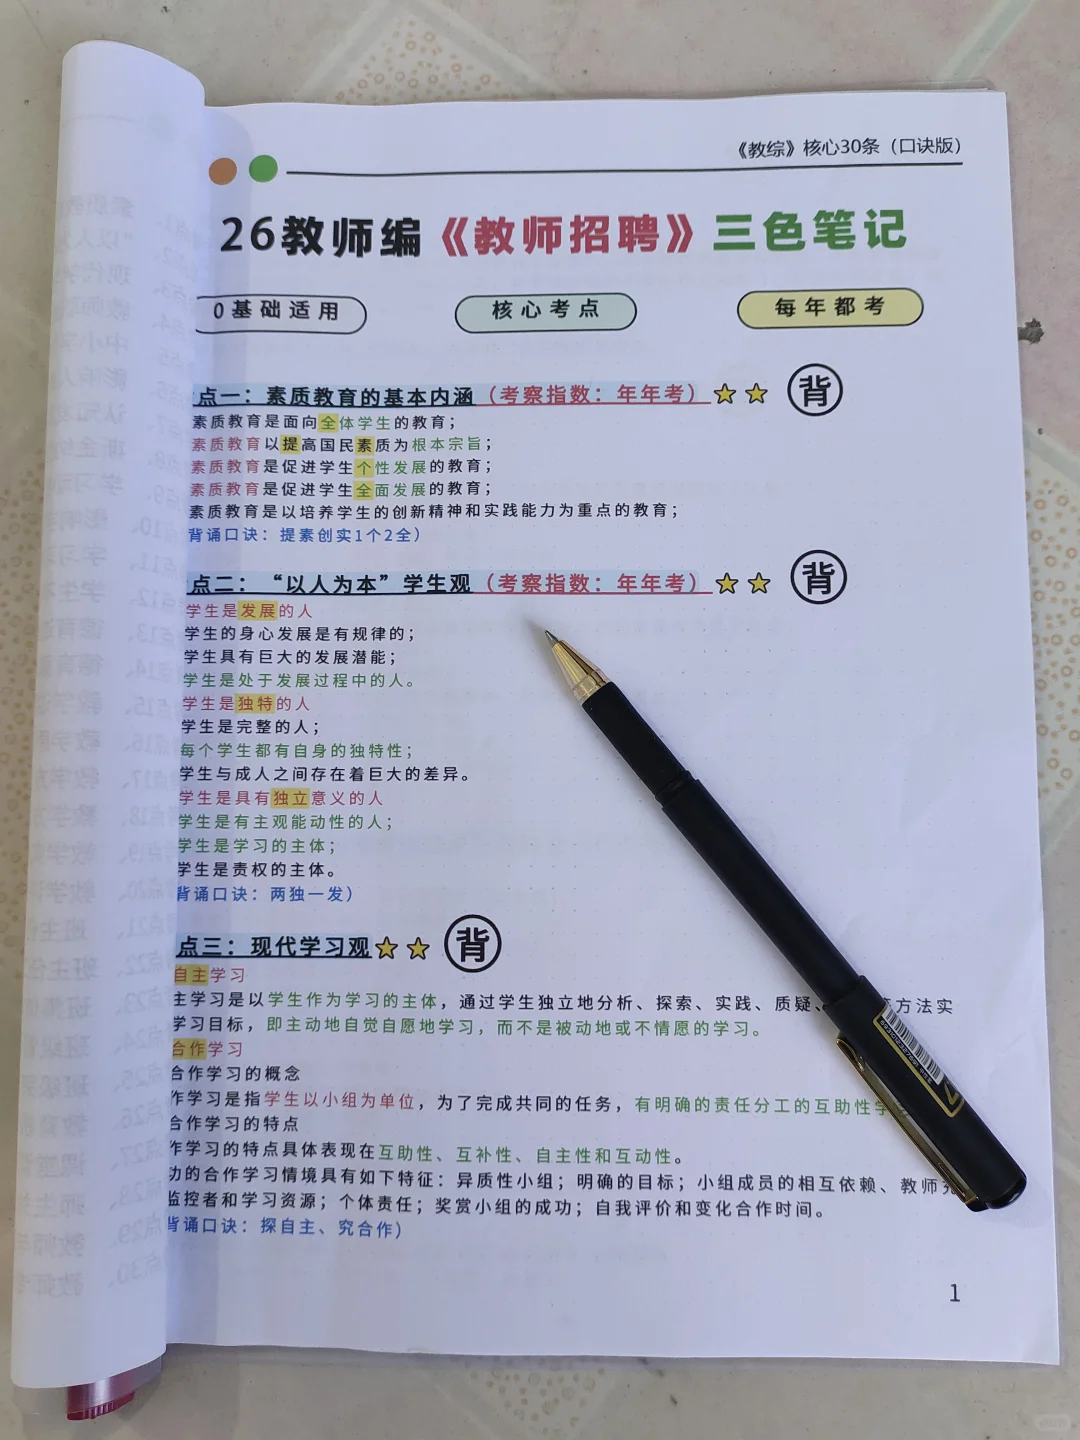 《教综》核心30条（口诀版）
26教师编《教师招聘》三色笔记
0基础适用
核心考点
每年都考
点一：素质教育的基本内涵（考察指数：年年考）
背
素质教育是面向全体学生的教育；
素质教育以提高国民素质为根本宗旨；
素质教育是促进学生个性发展的教育；
素质教育是促进学生全面发展的教育；
素质教育是以培养学生的创新精神和实践能力为重点的教育；
背诵口诀：提素创实1个2全）
点二：“以人为本”学生观（考察指数：年年考）
背
学生是发展的人
学生的身心发展是有规律的；
学生具有巨大的发展潜能；
学生是处于发展过程中的人。
学生是独特的人
学生是完整的人；
每个学生都有自身的独特性；
学生与成人之间存在着巨大的差异。
学生是具有独立意义的人
学生是有主观能动性的人；
学生是学习的主体；
学生是责权的主体。
背诵口诀：两独一发）
点三：现代学习观
背
自主学习
主学习是以学生作为学习的主体，通过学生独立地分析、探索、实践、质疑、方法实
学习目标，即主动地自觉自愿地学习，而不是被动地或不情愿的学习。
合作学习
合作学习的概念
作学习是指学生以小组为单位，为了完成共同的任务，有明确的责任分工的互助性学
合作学习的特点
作学习的特点具体表现在互助性、互补性、自主性和互动性。
功的合作学习情境具有如下特征：异质性小组；明确的目标；小组成员的相互依赖、教师充
监控者和学习资源；个体责任；奖赏小组的成功；自我评价和变化合作时间。
背诵口诀：探自主、究合作）
1